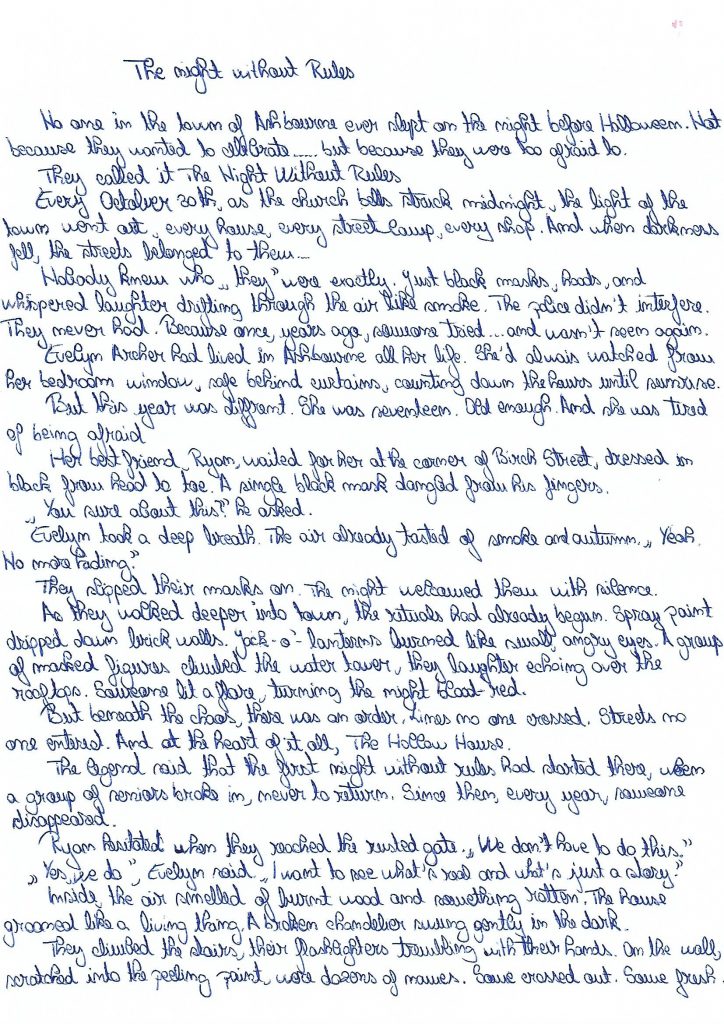 The night without Rules
No one in the town of Ashbourne ever slept on the night before Halloween. Not
because they wanted to celebrate...... but because they were too afraid to.
They called it The Night Without Rules
Every October 30th, as the church bells struck midnight, the light of the
town went out, every house, every street lamp, every shop. And when darkness
fell, the streets belonged to them....
Nobody knew who „they” were exactly. Just black masks, hoods, and
whispered laughter drifting through the air like smoke. The police didn't interfere.
They never had. Because once, years ago, someone tried....and wasn't seen again.
Evelyn Archer had lived in Ashbourne all her life. She'd alwais watched from
her bedroom window, safe behind curtains, counting down the hours until sunrise.
But this year was diffrent. She was seventeen. Old enough. And she was tired
of being afraid
Her best friend, Ryan, waited for her at the corner of Birch Street, dressed in
black from head to toe. A single black mask dangled from his fingers.
„You sure about this?” he asked.
Evelyn took a deep breath. The air already tasted of smoke and autumn. „Yeah.
No more hiding.”
They slipped their masks on. The night welcomed them with silence.
As they walked deeper into town, the rituals had already begun. Spray paint
dripped down brick walls. Jack-o'-lanterns burned like small, angry eyes. A group
of masked figures climbed the water tower, they laughter echoing over the
rooftops. Someone lit a flare, turning the night blood-red.
But beneath the chaos, there was an order. Lines no one crossed. Streets no
one entered. And at the heart of it all, The Hollow House.
The legend said that the first night without rules had started there, when
a group of seniors broke in, never to return. Since then, every year, someone
disappeared.
Ryan hesitated when they reached the rusted gate. „We don't have to do this.”
„Yes, we do”, Evelyn said. „I want to see what's real and what's just a story.”
Inside, the air smelled of burnt wood and something rotten. The house
groaned like a living thing. A broken chandelier swung gently in the dark.
They climbed the stairs, their flashlighters trembling with their hands. On the wall,
scratched into the peeling paint, were dozens of names. Some crossed out. Some fresh.